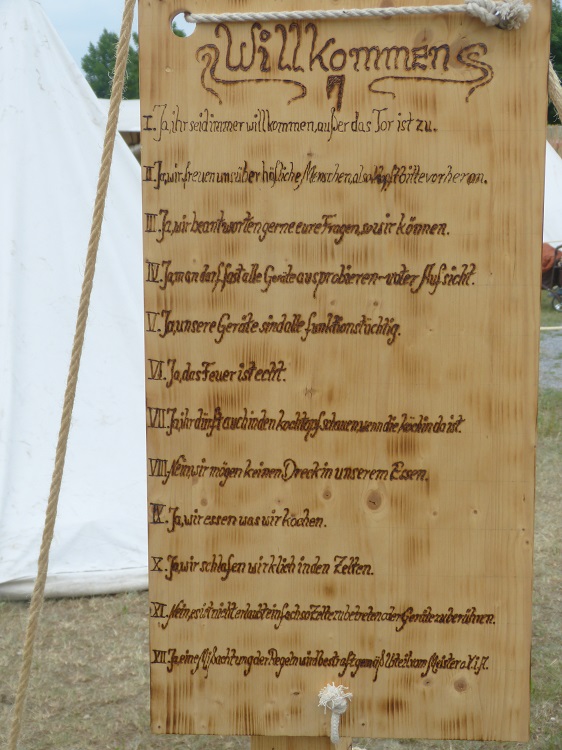 Willkommen
I. Ja, ihr seid immer willkommen, außer das Tor ist zu.
II. Ja, wir freuen uns über höfliche Menschen, also klopft bitte vorher an.
III. Ja, wir beantworten gerne eure Fragen, so wir können.
IV. Ja, man darf fast alle Geräte ausprobieren - unter Aufsicht.
V. Ja, unsere Geräte sind alle funktionstüchtig.
VI. Ja, das Feuer ist echt.
VII. Ja, ihr dürft auch in den Kochtopf schauen wenn die Köchin da ist
VIII. Nein wir mögen keinen Dreck in unserem Essen.
IX. Ja, wir essen was wir kochen.
X. Ja, wir schlafen wirklich in den Zelten.
XI. Nein, es ist nicht erlaubt einfach so Zelte zu betreten oder Geräte zu berühren.
XII. Ja, eine Mißachtung der Regeln wird bestraft gemäß Urteil vom Meister